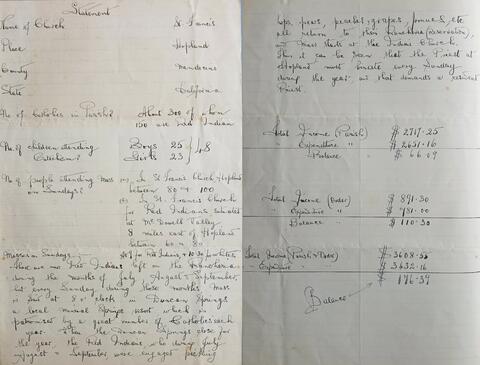 Statement
Name of Church St. Francis
Place Hopland
County Mendocino
State California
No of Catholics in Parish? About 300 of whom
150 are Red Indian
No. of children attending Boys 25
Catechism? Girls 23 } 48
No. of people attending Mass (1) In St. Francis Church Hopland
on Sundays? between 80 & 100
(2) In St. Francis Church
for Red Indians situated
in McDowell Valley
8 miles east of Hopland
between 60 & 80
Masses on Sundays: for Red Indians, & 10.30 for whites
There are no Red Indians left on the Rancheria
during the months of July August & September
but every Sunday during these months Mass
is said at 8 o'clock in Duncan Springs
a local mineral Springs resort which is
patronised by a great number of Catholics each
year. When the Duncan Springs close for
the year, the Red Indians, who during July
August & September were engaged picking
hops, pears, peaches, grapes, prunes, etc
all return to their Rancheria (Reservation),
and Mass starts at the Indian Church.
Thus it can be seen that the Priest at
Hopland must binate every Sunday
during the year and that demands a resident
Priest.
Total Income (Parish) $ 2717.25
" Expenditure " $ 2651.16
Balance $ 66.09
Total Income $ 891.30
" Expenditure " $ 781.00
Balance $ 110.30
Total Income (Parish & $ 3608.55
" Expenditure " $ 3432.16
Balance $ 176.39